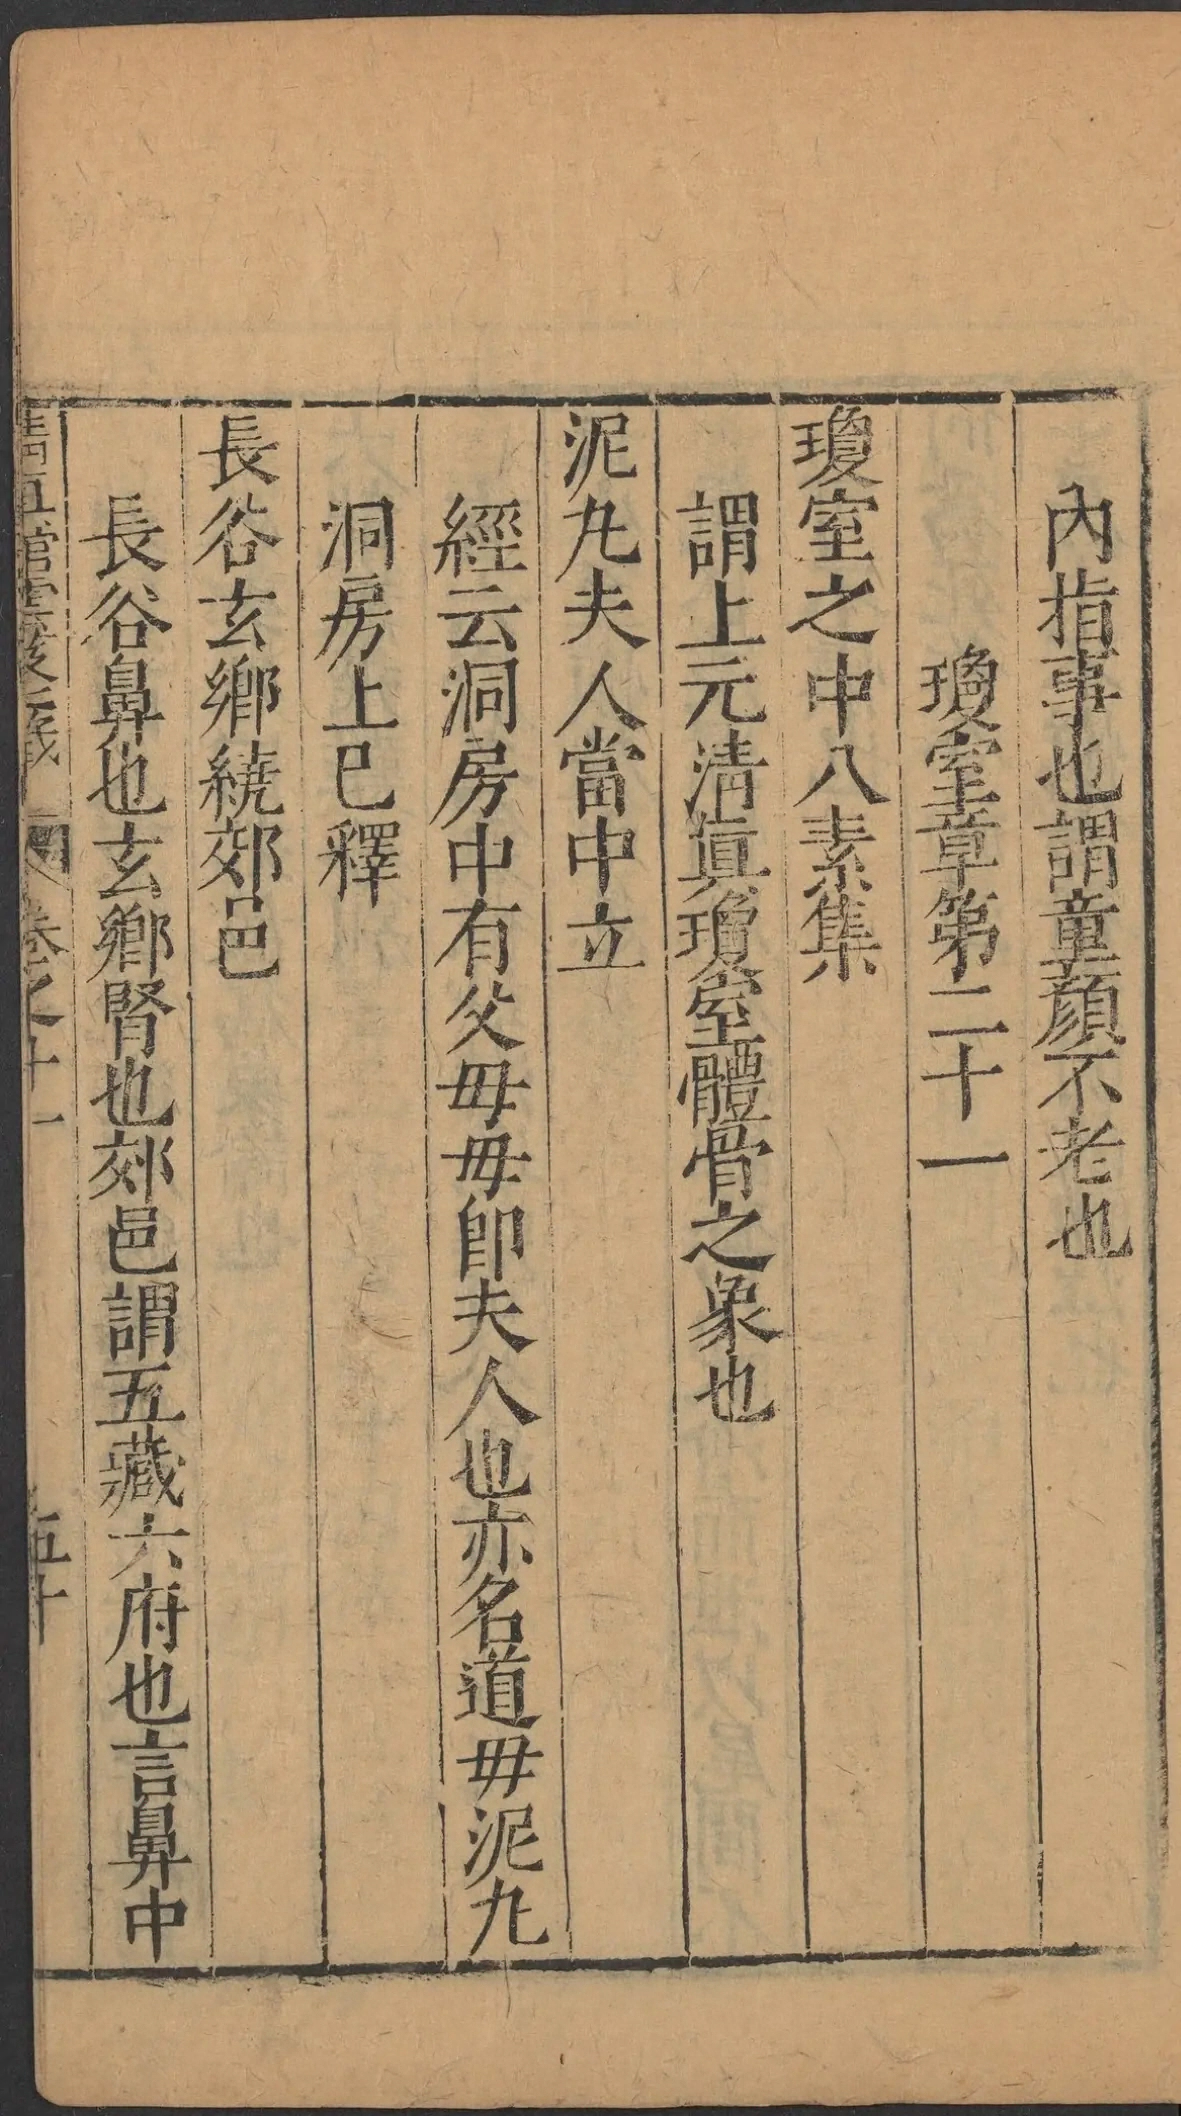 內指事也謂童顏不老也
瓊室章第二十一
瓊室之中八素集
謂上元清眞瓊室體骨之象也
泥丸夫人當中立
經云洞房中有父母母即夫人也亦名道母泥丸
洞房上已釋
長谷玄鄉繞郊邑
長谷鼻也玄鄉腎也郊邑謂五藏六府也言鼻中
卷之十一
五十